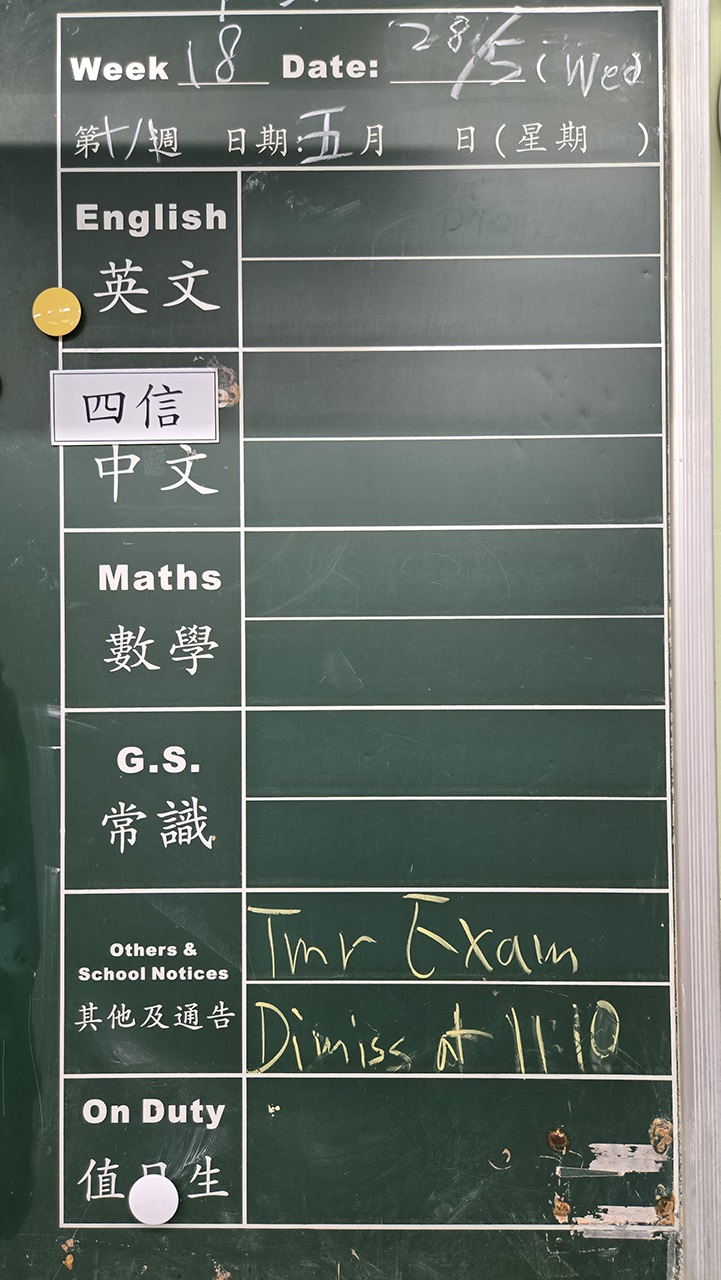 Week 18 Date: 28/5 (Wed)
第十八週 日期:五月 日(星期 )
English
英文
四信
中文
Maths
數學
G.S.
常識
Others &
School Notices
其他及通告
Tmr Exam
Dimiss at 11:10
On Duty
值日生